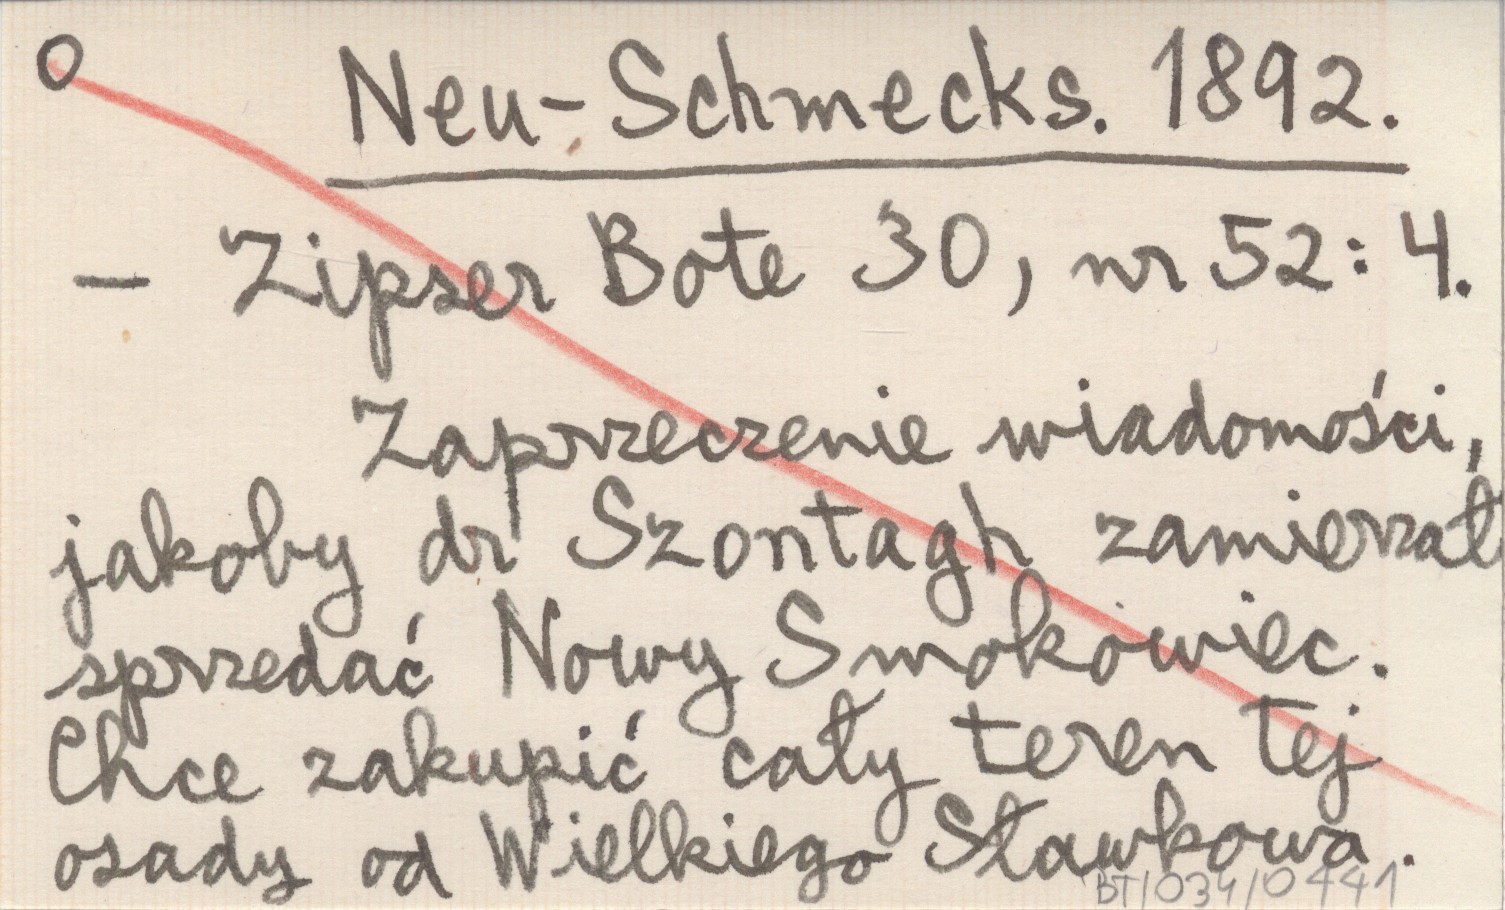 O
Neu-Schmecks. 1892.
— Zipser Bote 30, nr 52: 4.
Zaprzeczenie wiadomości,
jakoby dr Szontagh zamierzał
sprzedać Nowy Smokowiec.
Chce zakupić cały teren tej
osady od Wielkiego Sławkowa.
BT/034/0441